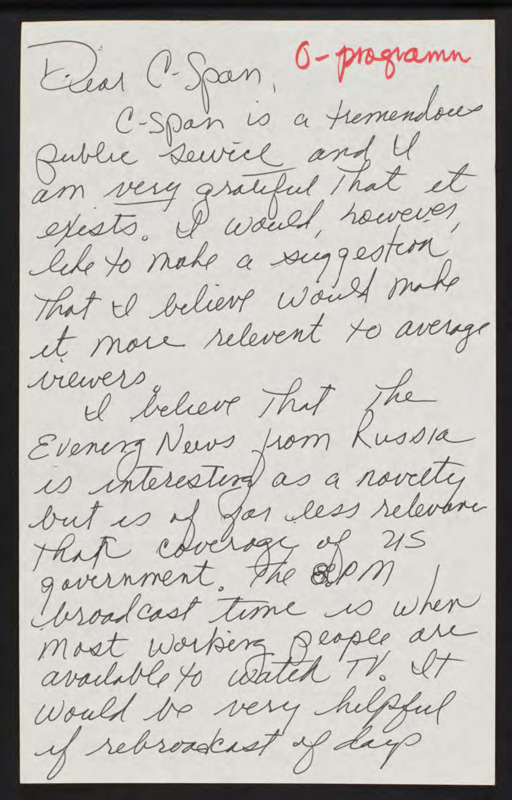 O-programn
Dear C-Span,
C-Span is a tremendous
public service and I
am very grateful that it
exists. I would, however,
like to make a suggestion
that I believe would make
it more relevent to average
viewers.
I believe that the
Evening News from Russia
is interesting as a novelty
but is of far less relevance
than coverage of US
government. The 8PM
broadcast time is when
most working people are
available to watch TV. It
would be very helpful
if rebroadcast of days